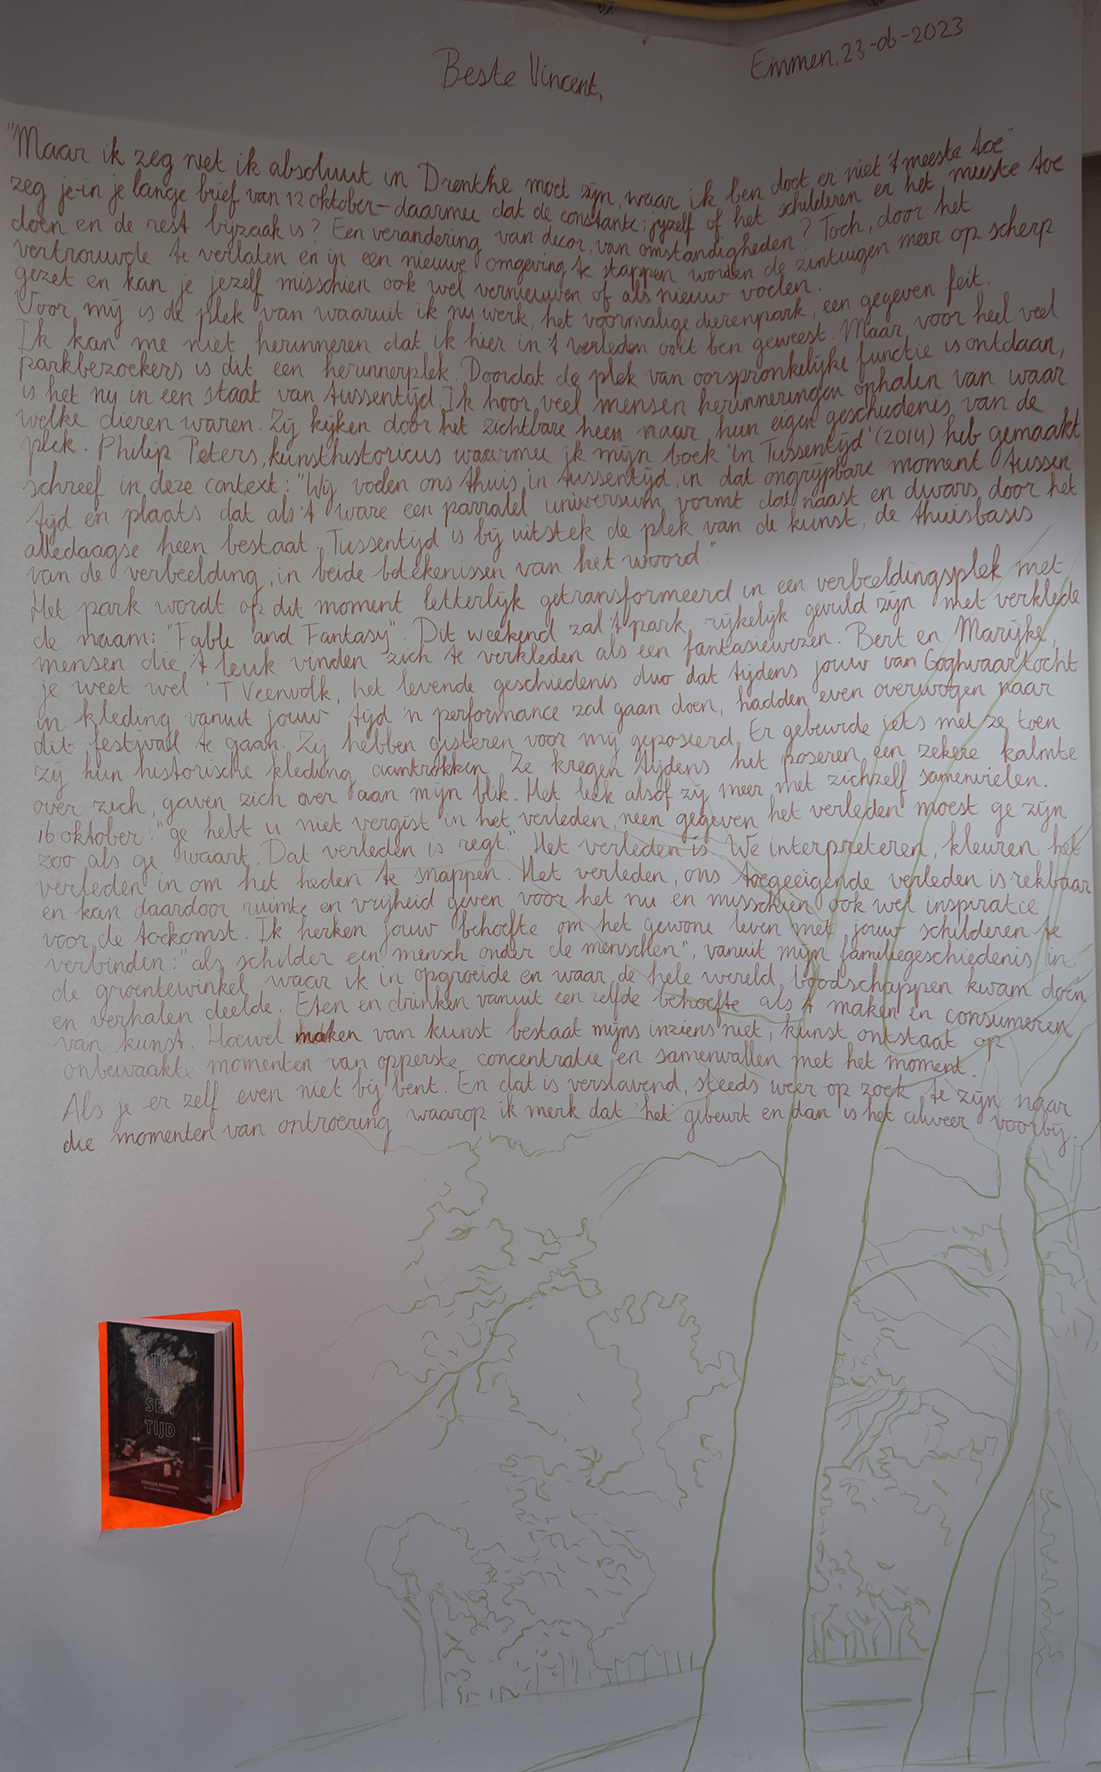 Beste Vincent,
Emmen, 23-06-2023
"Maar ik zeg niet ik absoluut in Drenthe moet zijn, waar ik ben doet er niet 't meeste toe"
zeg je in je lange brief van 12 oktober – daarmee dat de constante; jijzelf of het schilderen er het meeste toe
doen en de rest bijzaak is? Een verandering van decor, van omstandigheden? Toch, door het
vertrouwde te verlaten en in een nieuwe omgeving te stappen worden de zintuigen meer op scherp
gezet en kan je jezelf misschien ook wel vernieuwen of als nieuw voelen.
Voor mij is de plek van waaruit ik nu werk, het voormalige dierenpark, een gegeven feit.
Ik kan me niet herinneren dat ik hier in 't verleden ooit ben geweest. Maar voor heel veel
parkbezoekers is dit een herinnerplek. Doordat de plek van oorspronkelijke functie is ontdaan,
is het nu in een staat van tussentijd. Ik hoor veel mensen herinneringen ophalen van waar
welke dieren waren. Zij kijken door het zichtbare heen naar hun eigen geschiedenis van de
plek. Philip Peters, kunsthistoricus waarmee ik mijn boek 'In Tussentijd' (2014) heb gemaakt,
schreef in deze context: "Wij voelen ons thuis in tussentijd, in dat ongrijpbare moment tussen
tijd en plaats dat als 't ware een parralel universum vormt dat naast en dwars door het
alledaagse heen bestaat. Tussentijd is bij uitstek de plek van de kunst, de thuisbasis
van de verbeelding, in beide betekenissen van het woord."
Het park wordt op dit moment letterlijk getransformeerd in een verbeeldingsplek met
de naam: "Fable and Fantasy". Dit weekend zal 't park rijkelijk gevuld zijn met verklede
mensen die 't leuk vinden zich te verkleden als een fantasiewezen. Bert en Marijke,
je weet wel 'T Veenvolk, het levende geschiedenis duo dat tijdens jouw van Goghvaartocht
in kleding vanuit jouw tijd 'n performance zal gaan doen, hadden even overwogen naar
dit festivall te gaan. Zij hebben gisteren voor mij geposeerd. Er gebeurde iets met ze toen
zij hun historische kleding aantrokken. Ze kregen tijdens het poseren een zekere kalmte
over zich, gaven zich over aan mijn blik. Het leek alsof zij meer met zichzelf samenvielen.
16 oktober: "ge hebt u niet vergist in het verleden, neen gegeven het verleden moest ge zijn
zoo als ge waart. Dat verleden is regt." Het verleden is. We interpreteren, kleuren het
verleden in om het heden te snappen. Het verleden, ons toegeeigende verleden is rekbaar
en kan daardoor ruimte en vrijheid geven voor het nu en misschien ook wel inspiratie
voor de toekomst. Ik herken jouw behoefte om het gewone leven met jouw schilderen te
verbinden: "als schilder een mensch onder de menschen", vanuit mijn familiegeschiedenis in
de groentewinkel waar ik in opgroeide en waar de hele wereld boodschappen kwam doen
en verhalen deelde. Eten en drinken vanuit een zelfde behoefte als 't maken en consumeren
van kunst. Hoewel maken van kunst bestaat mijns inziens niet, kunst ontstaat op
onbewaakte momenten van opperste concentratie en samenvallen met het moment.
Als je er zelf even niet bij bent. En dat is verslavend, steeds weer op zoek te zijn naar
die momenten van ontroering waarop ik merk dat 'het' gebeurt en dan is het alweer voorbij.
IN
TUS
SEN
TIJD